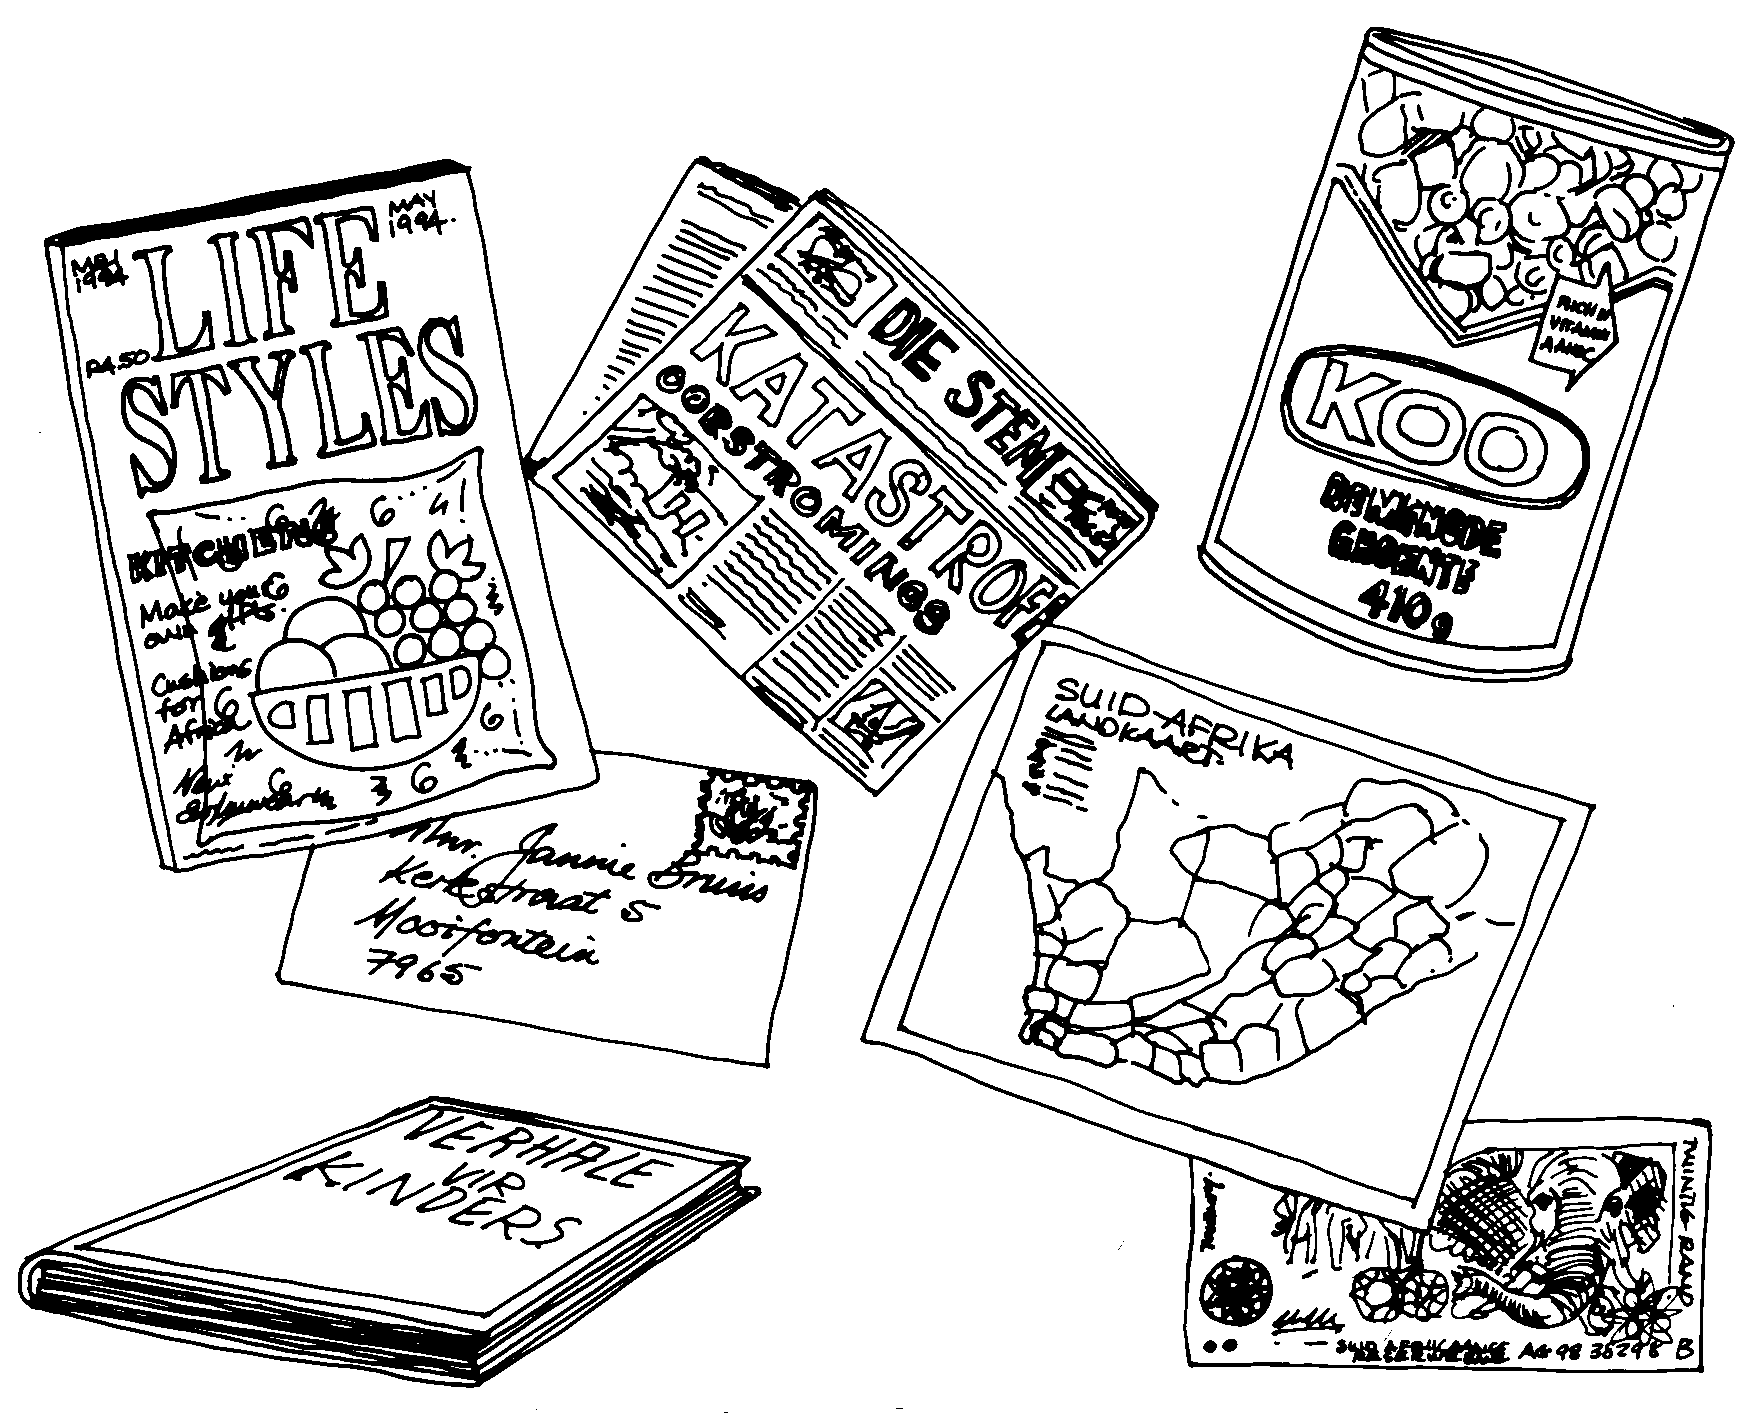 MAY
1994
LIFE
MAY
1994.
R4.50
STYLES
KITCHEN
Make your
own gifts.
Cushions
for
Africa
New
DIE STEM
KATASTROFE
OORSTROMINGS
RICH IN
VITAMIN
A AND C
KOO
GROENTE
410 g
Mnr. Jannie Bruins
Kerkstraat 5
Mooifontein
7965
SUID-AFRIKA
LANDKAART
VERHALE
VIR
KINDERS
TWINTIG RAND
SUID AFRIKAANSE
RESERWEBANK
AA 98 35298 B